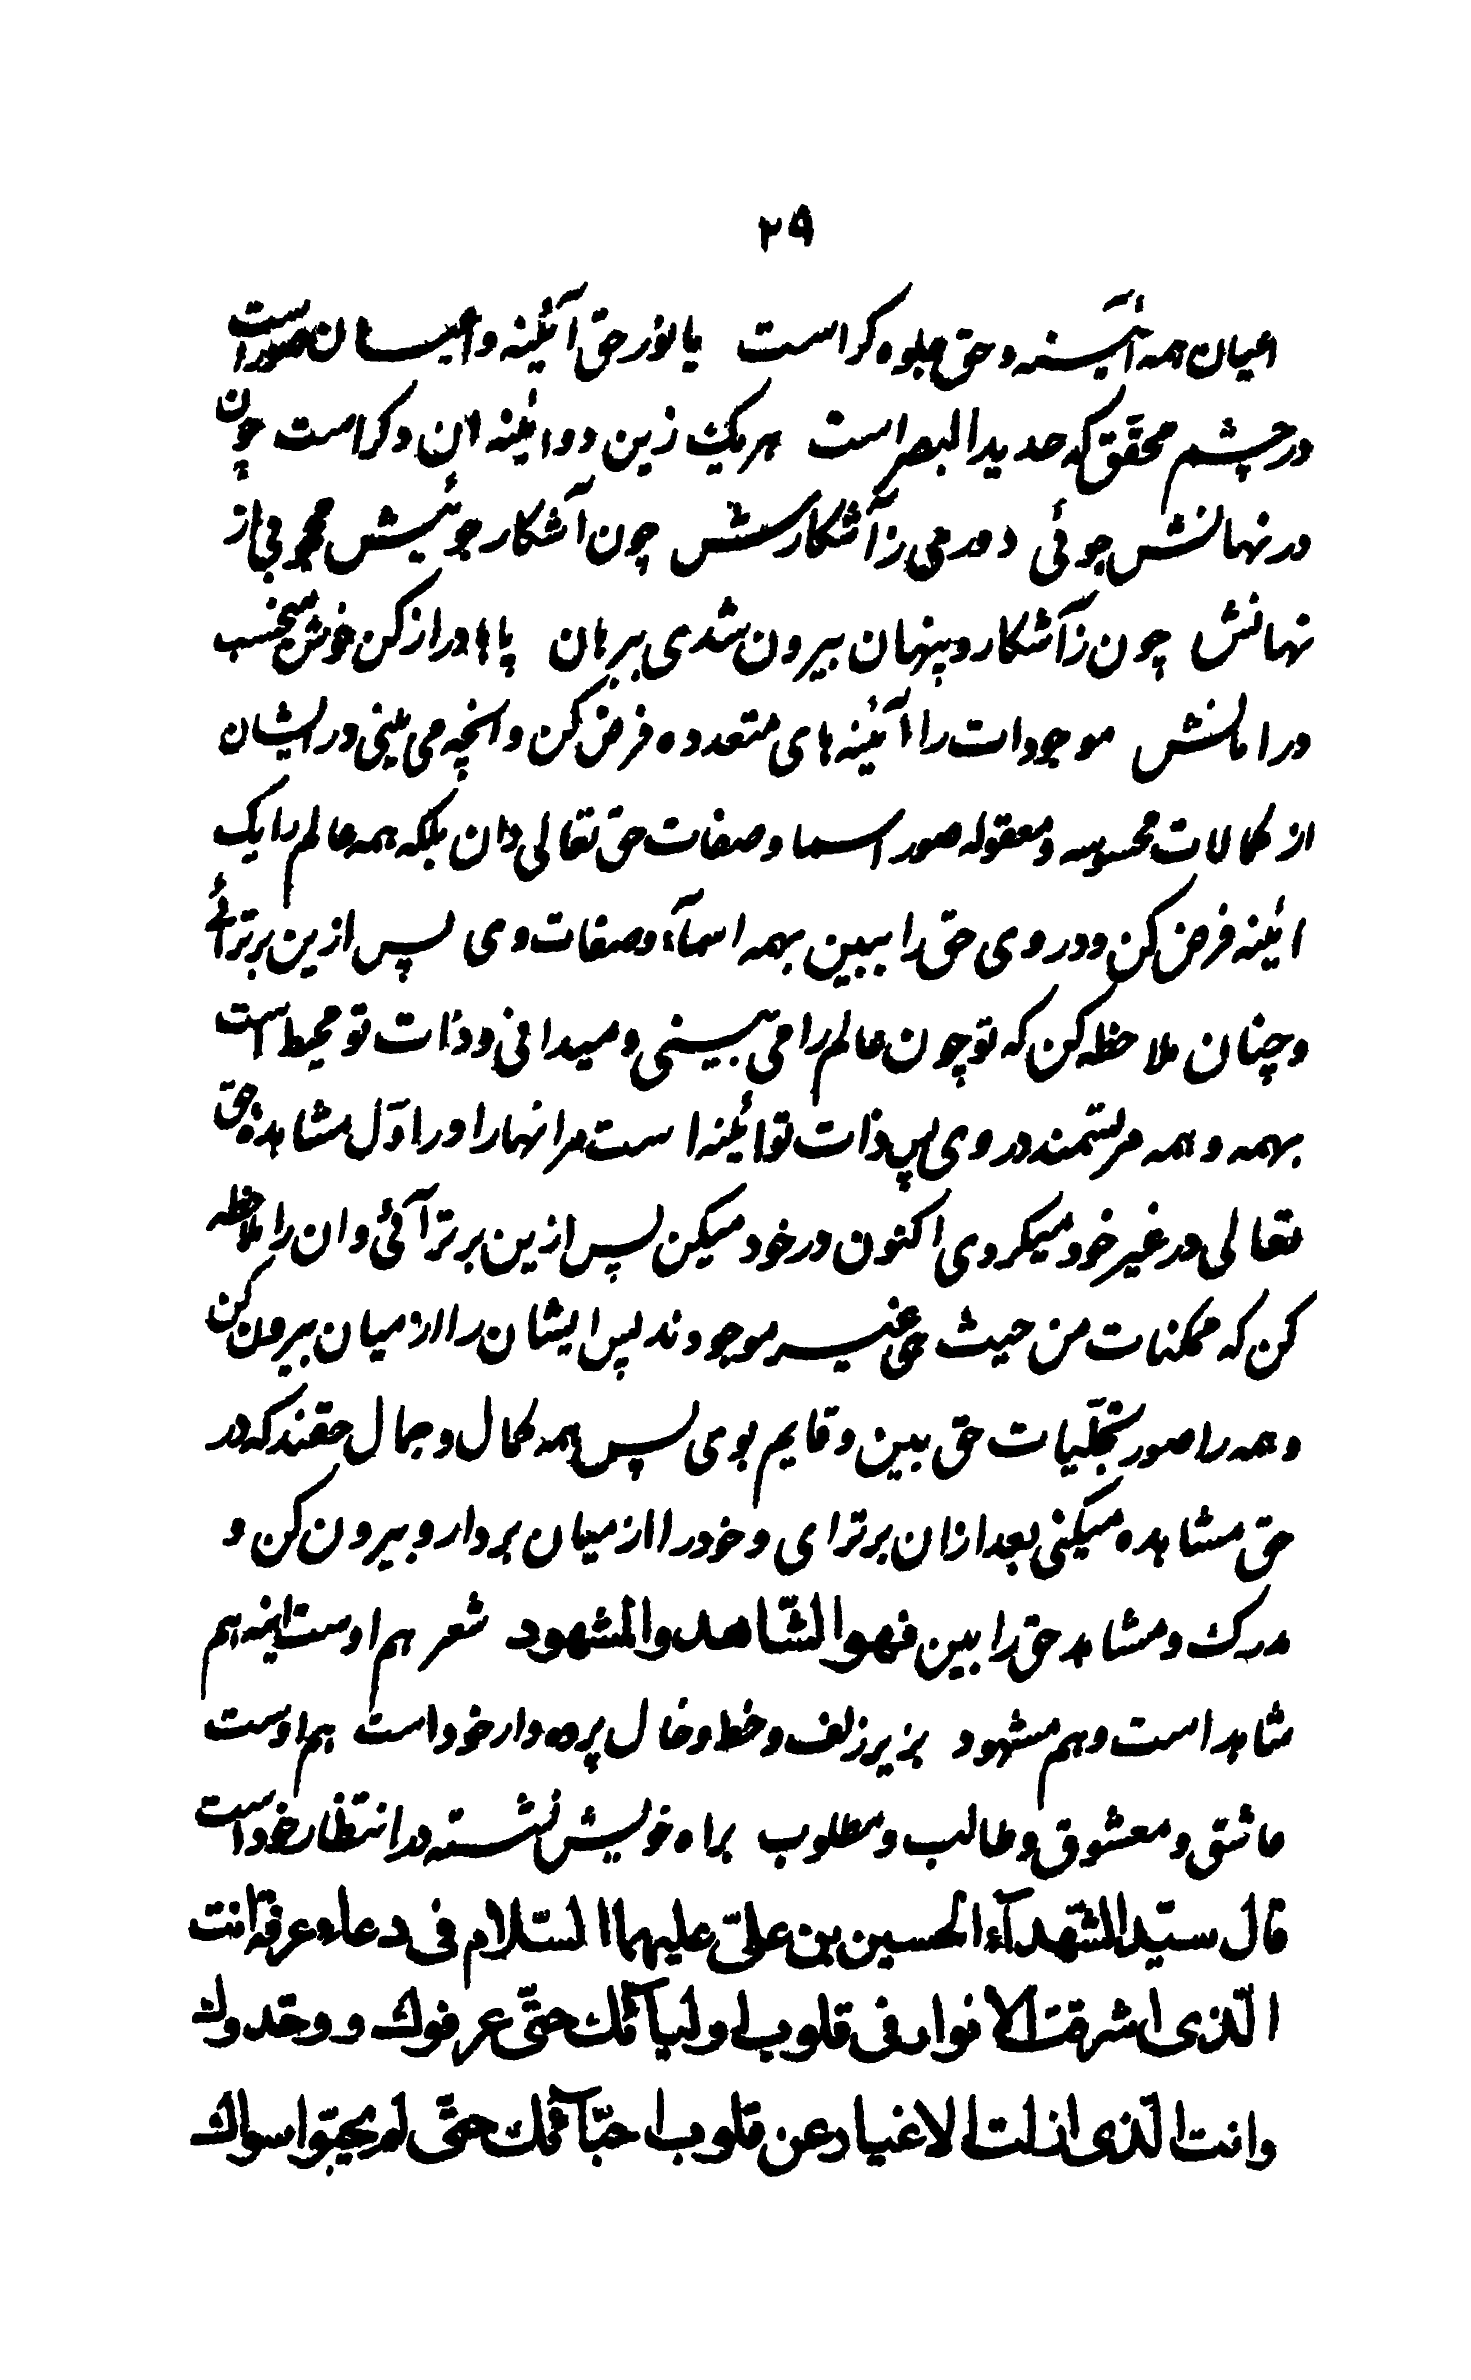 ۲۹
اعیان همه آئینه و حق جلوه کراست یا نور حق آئینه و اعیان صور است
در چشم محقق که حدید البصر است هر یک زین دو ائینه ان دکر است چون
در نهانش جوئی دور می ز آشکارش چون آشکار جوئیش محجوبی از
نهانش چون ز آشکار و پنهان بیرون شدی ببرهان پاها دراز کن خوش میخسب
در امانش موجودات را آئینه های متعدده فرض کن و انچه می بینی در ایشان
از کمالات محسوسه و معقوله صور اسما و صفات حق تعالی دان بلکه همه عالم را یک
ائینه فرض کن و در وی حق را ببین بهمه اسمآء و صفات وی پس ازین برتر آئے
و چنان ملاحظه کن که تو چون عالم را می بینی و میدانی و ذات تو محیط است
بهمه و همه مرتسمند در وی پس ذات تو ائینه است مر انها را و را اوّل مشاهدهٔ حق
تعالی در غیر خود میکردی اکنون در خود میکن پس ازین برتر آئی و ان را ملاحظه
کن که ممکنات من حیث هی غیر موجودند پس ایشان را از میان بیرون کن
و همه را صور تجلّیات حق بین و قایم بوی پس همه کمال و جمال حقند که در
حق مشاهده میکنی بعد ازان برتر ای و خود را از میان بردار و بیرون کن و
مدرک و مشاهد حق را بین فهو الشّاهد و المشهود شعر هم اوست ائینه هم
شاهد است و هم مشهود بزیر زلف و خط و خال پرده دار خود است هم اوست
عاشق و معشوق و طالب و مطلوب براه خویش نشسته در انتظار خود است
قال سیّد الشّهدآء الحسین بن علیّ علیهما السّلام فی دعاء عرفة انت
الّذی اشرقت الانوار فی قلوب اولیآئک حتّی عرفوک و وحّدوک
و انت الّذی ازلت الاغیار عن قلوب احبّآئک حتّی لم یحبّوا سواک